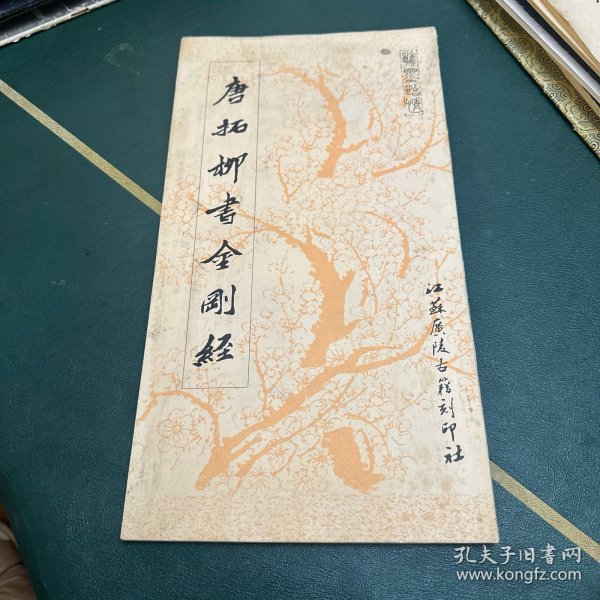 唐拓柳書金剛經
江蘇廣陵古籍刻印社
孔夫子旧书网
www.kongfz.com